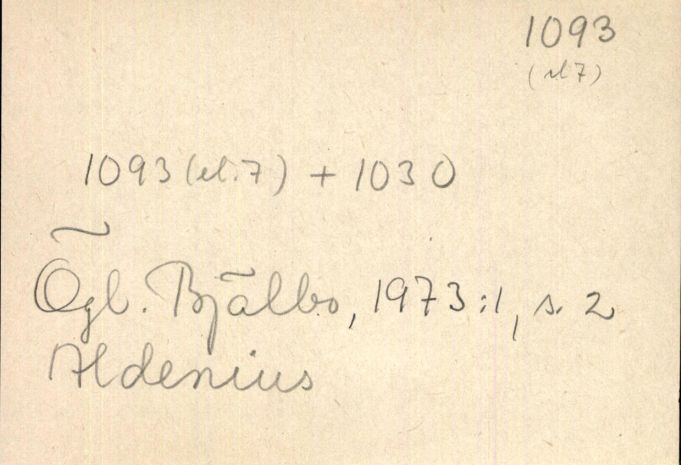 1093
(el 7)
1093 (el. 7) + 1030
Ögl. Bjälbo, 1973:1, s. 2
Aldenius